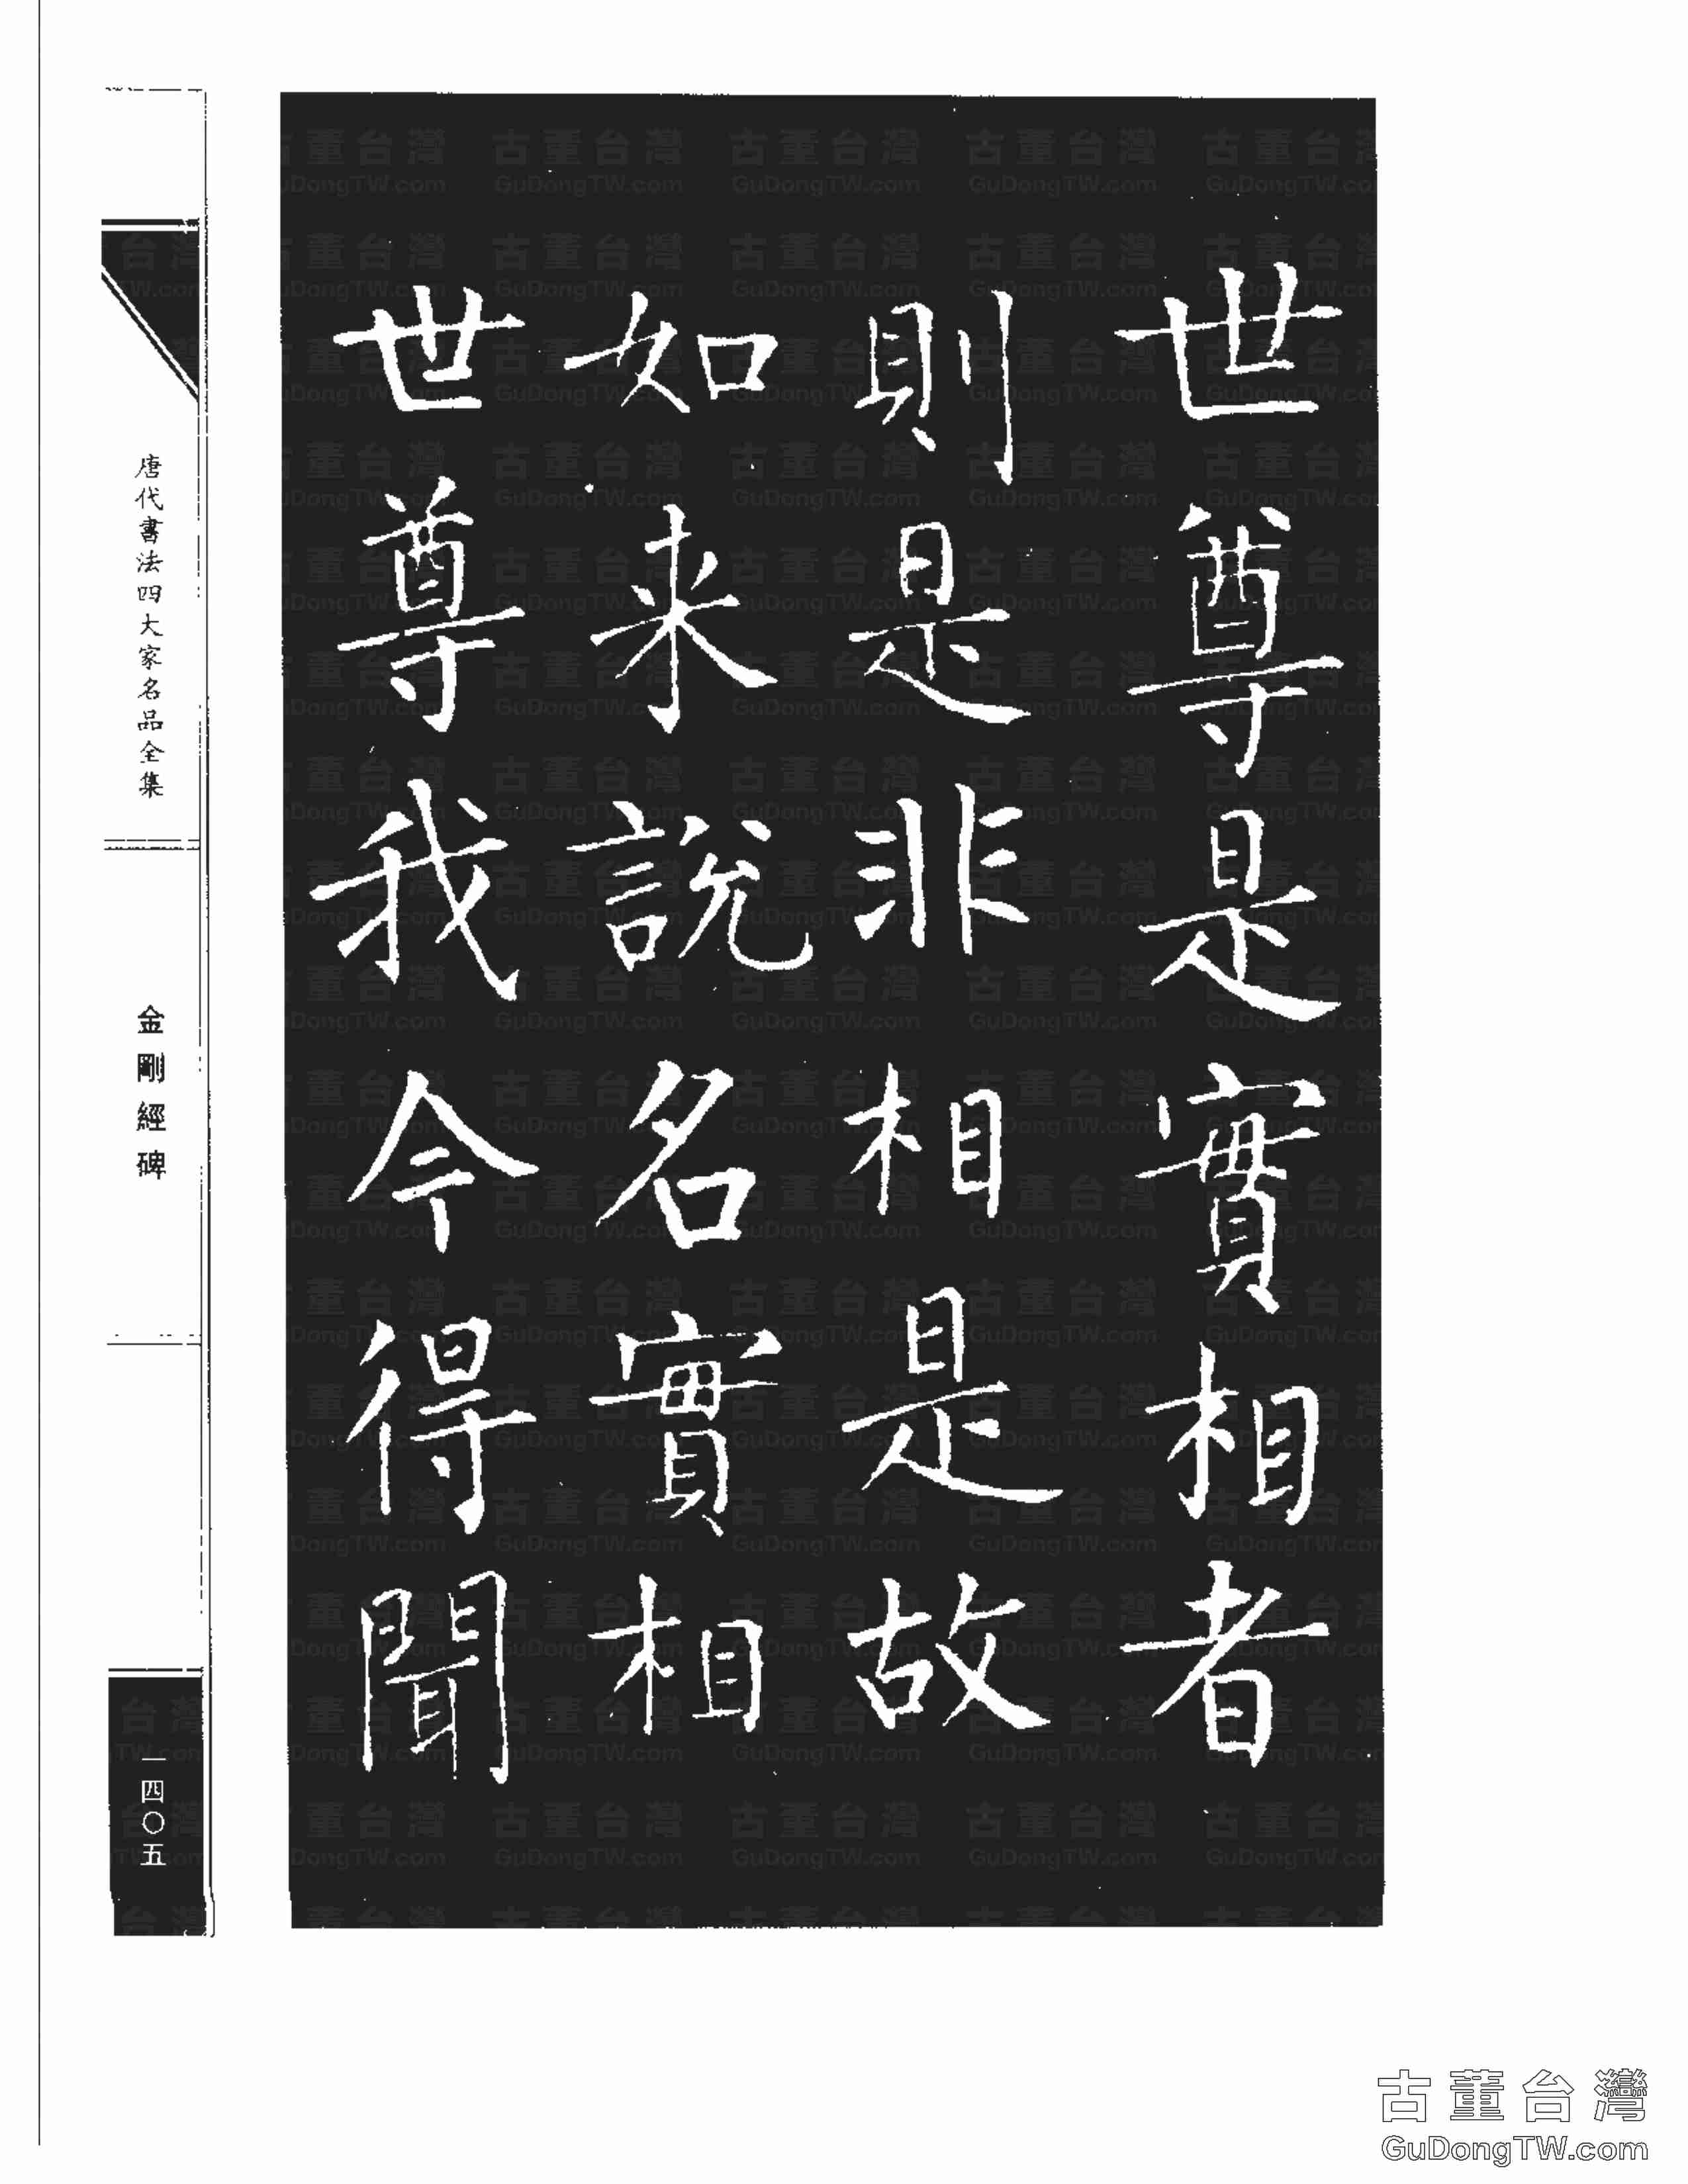 世尊是實相者
則是非相是故
如来說名實相
世尊我今得聞
唐代書法四大家名品全集
金剛經碑
一四〇五
古董台灣
GuDongTW.com